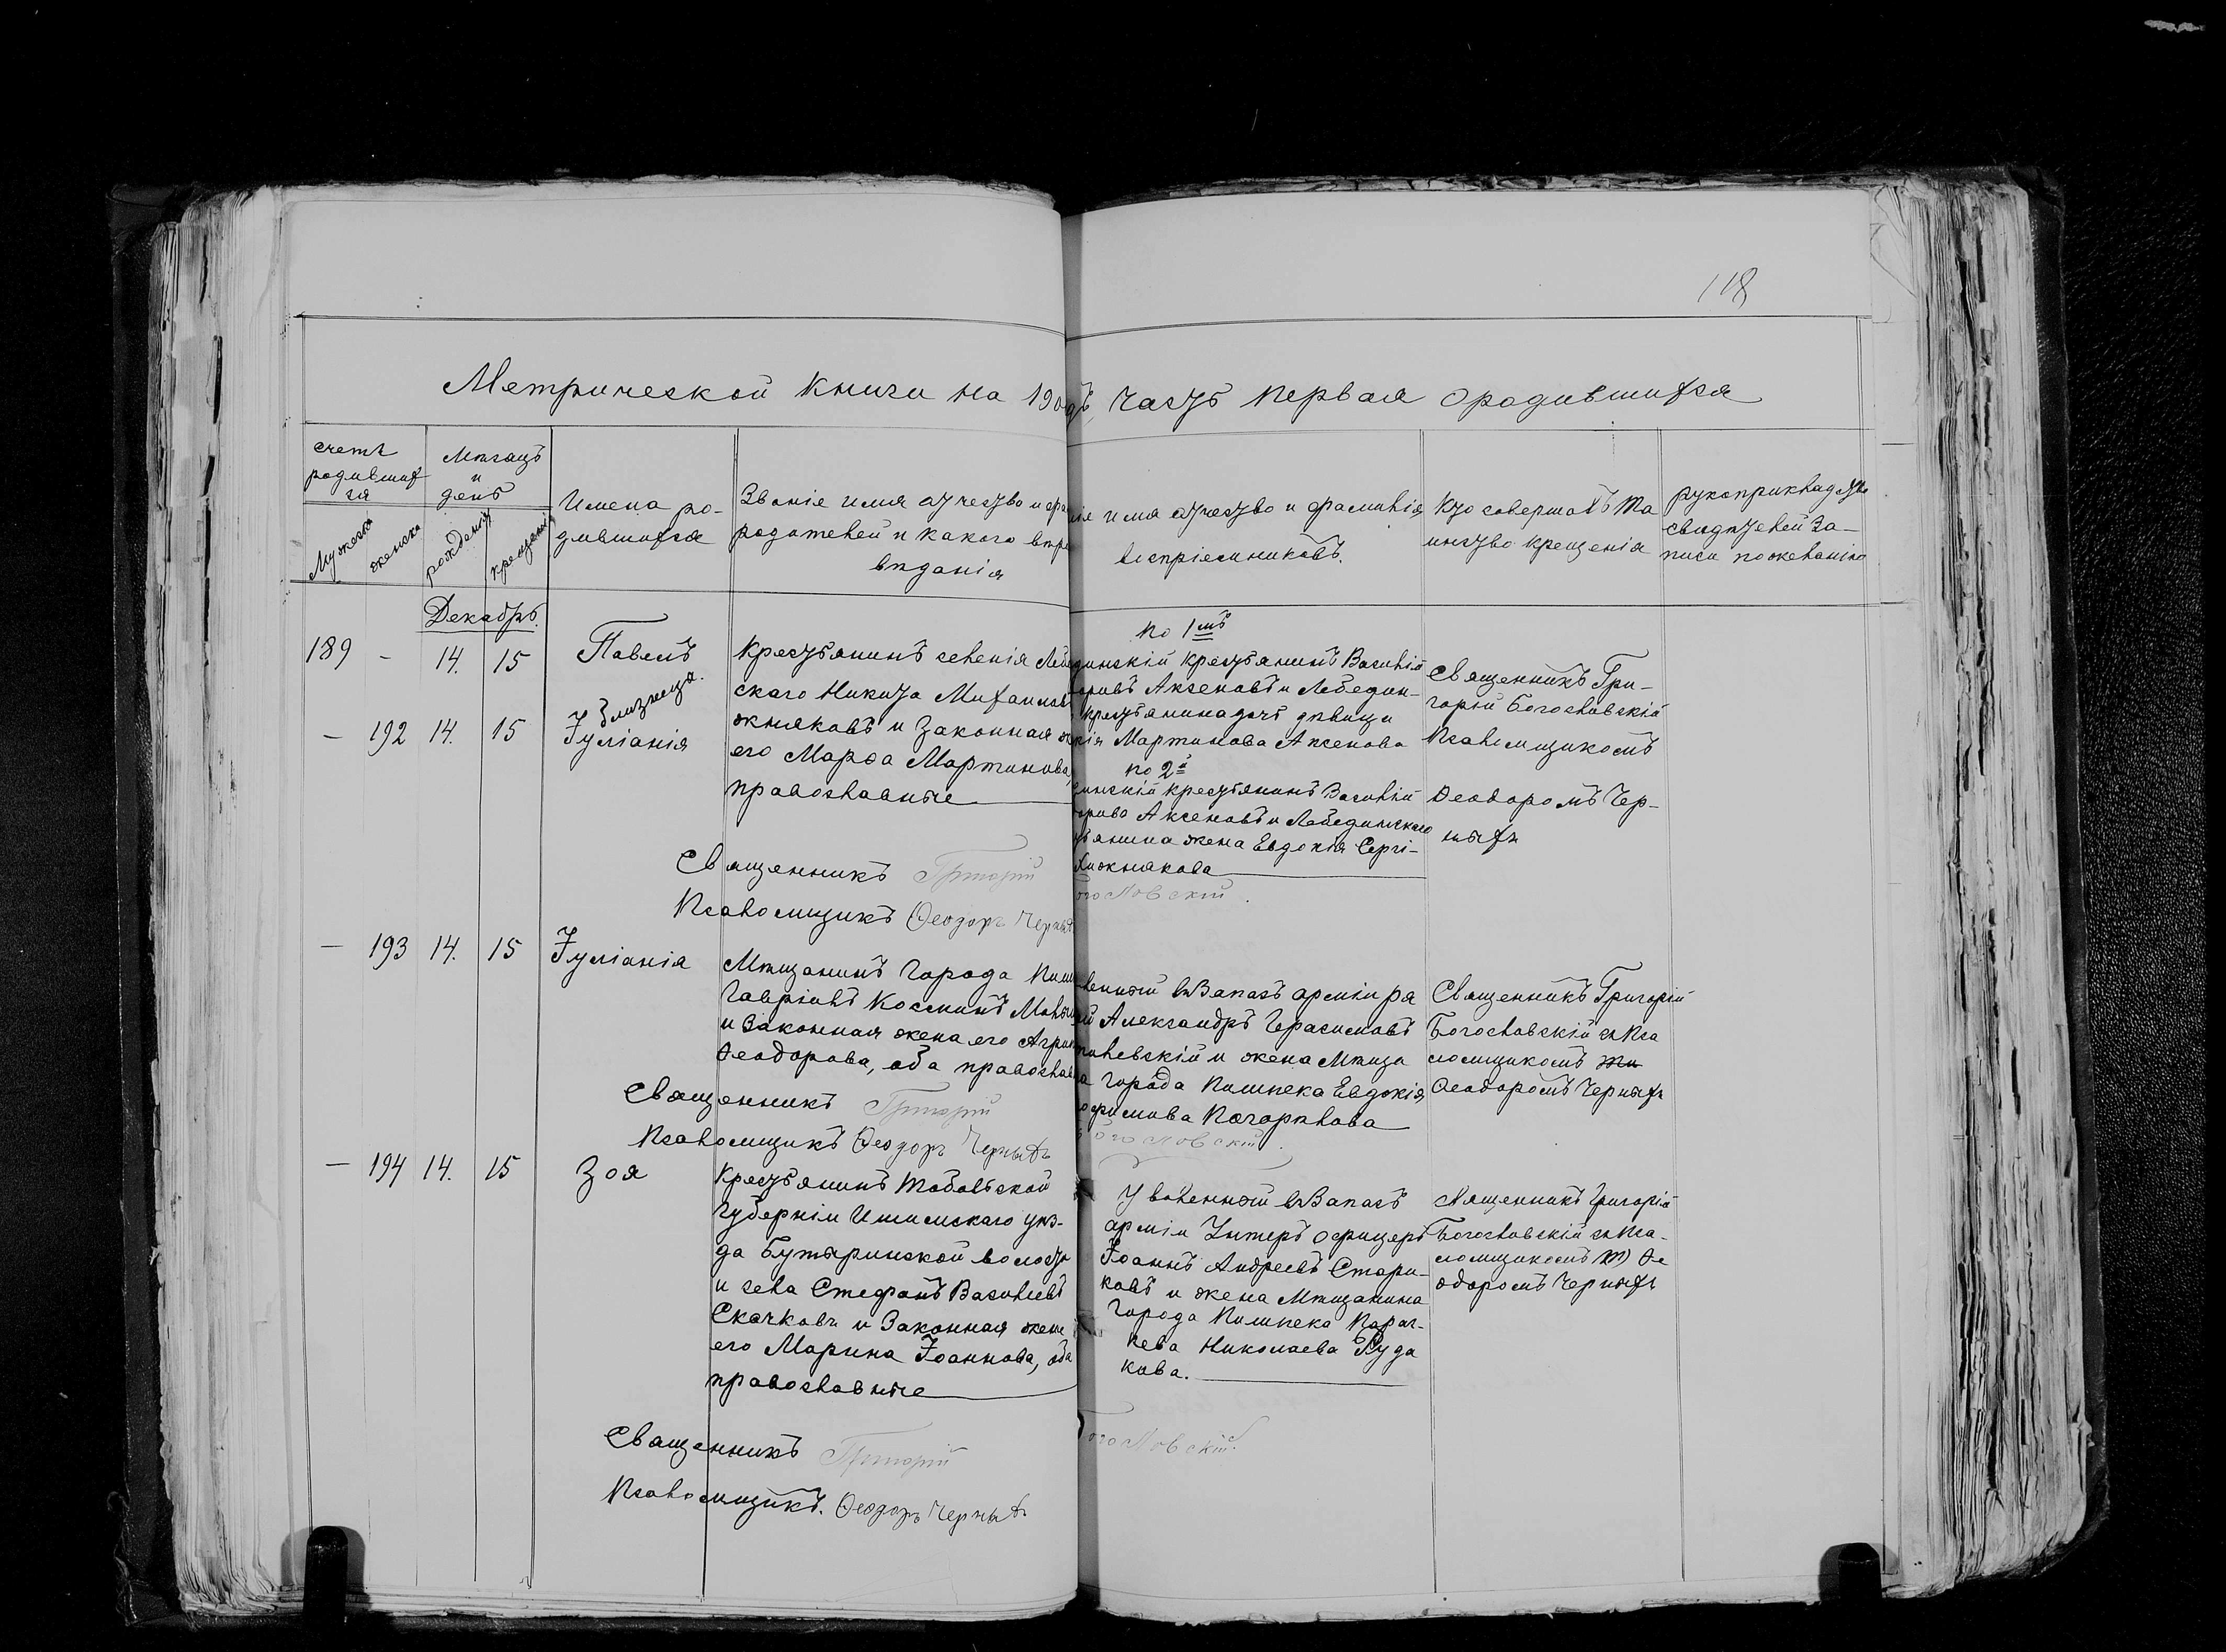 118
Метрической книги на 190 г., часть первая о родившихся
счетъ родившихся
Мѣсяцъ и день
Мужеска
женска
рожденія
крещенія
Имена родившихся
Званіе имя отчество и фа
родителей и какого вѣро
вѣданія
ніе имя отчество и фамилія
воспріемниковъ.
Кто совершалъ та
инство крещенія
рукоприкладство
свидѣтелей за-
писи по желанію
Декабрь.
189 - 14. 15 Павелъ
близнеца.
- 192 14. 15 Іуліанія
Крестьянинъ селенія Лебе
скаго Никита Михаилов
жняковъ и законная ж
его Марѳа Мартинова,
православные
по 1мъ
динскій крестьянинъ Василій
Аксеновъ и Лебедин-
крестьянина дочь дѣвица
кія Мартинова Аксенова
по 2й
динскій крестьянинъ Василій
Аксеновъ и Лебединскаго
тьянина жена Евдокія Сергі-
Хижнякова
Священникъ Гри-
горій Богославскій
Псаломщикомъ
Ѳеодоромъ Чер-
ныхъ
Священникъ Григорій
огословскій.
Псаломщикъ Ѳеодоръ Черных
- 193 14. 15 Іуліанія
Мѣщанинъ города Пиш
Гавріилъ Косминъ
и законная жена его Агрип
Ѳеодорова, оба православ
ленный въ запасъ арміи ря
й Александръ Герасимовъ
левскій и жена мѣща
а города Пишпека Евдокія
офимова Погорѣлова
Священникъ Григорій
Богославскій съ Пса
ломщикомъ
Ѳеодоромъ Черныхъ
Священникъ Григорій
огословскій.
Псаломщикъ Ѳеодоръ Черныхъ
- 194 14. 15 Зоя
Крестьянинъ Тобольской
губерніи Ишимскаго уѣз-
да Бутыринской волости
и села Стефанъ Васильевъ
Скачковъ и законная жена
его Марина Іоаннова, оба
православные
Уволенный въ запасъ
арміи Унтеръ офицеръ
Іоаннъ Андреевъ Стари-
ковъ и жена мѣщанина
города Пишпека Парас-
кева Николаева Руда
кова.
Священникъ Григорій
Богославскій съ Пса-
ломщикомъ Ѳе
одоромъ Черныхъ
Священникъ Григорій
огословскій.
Псаломщикъ. Ѳеодоръ Черныхъ